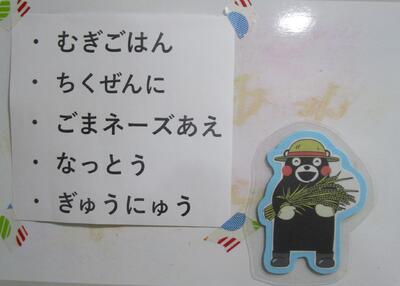 ・むぎごはん
・ちくぜんに
・ごまネーズあえ
・なっとう
・ぎゅうにゅう